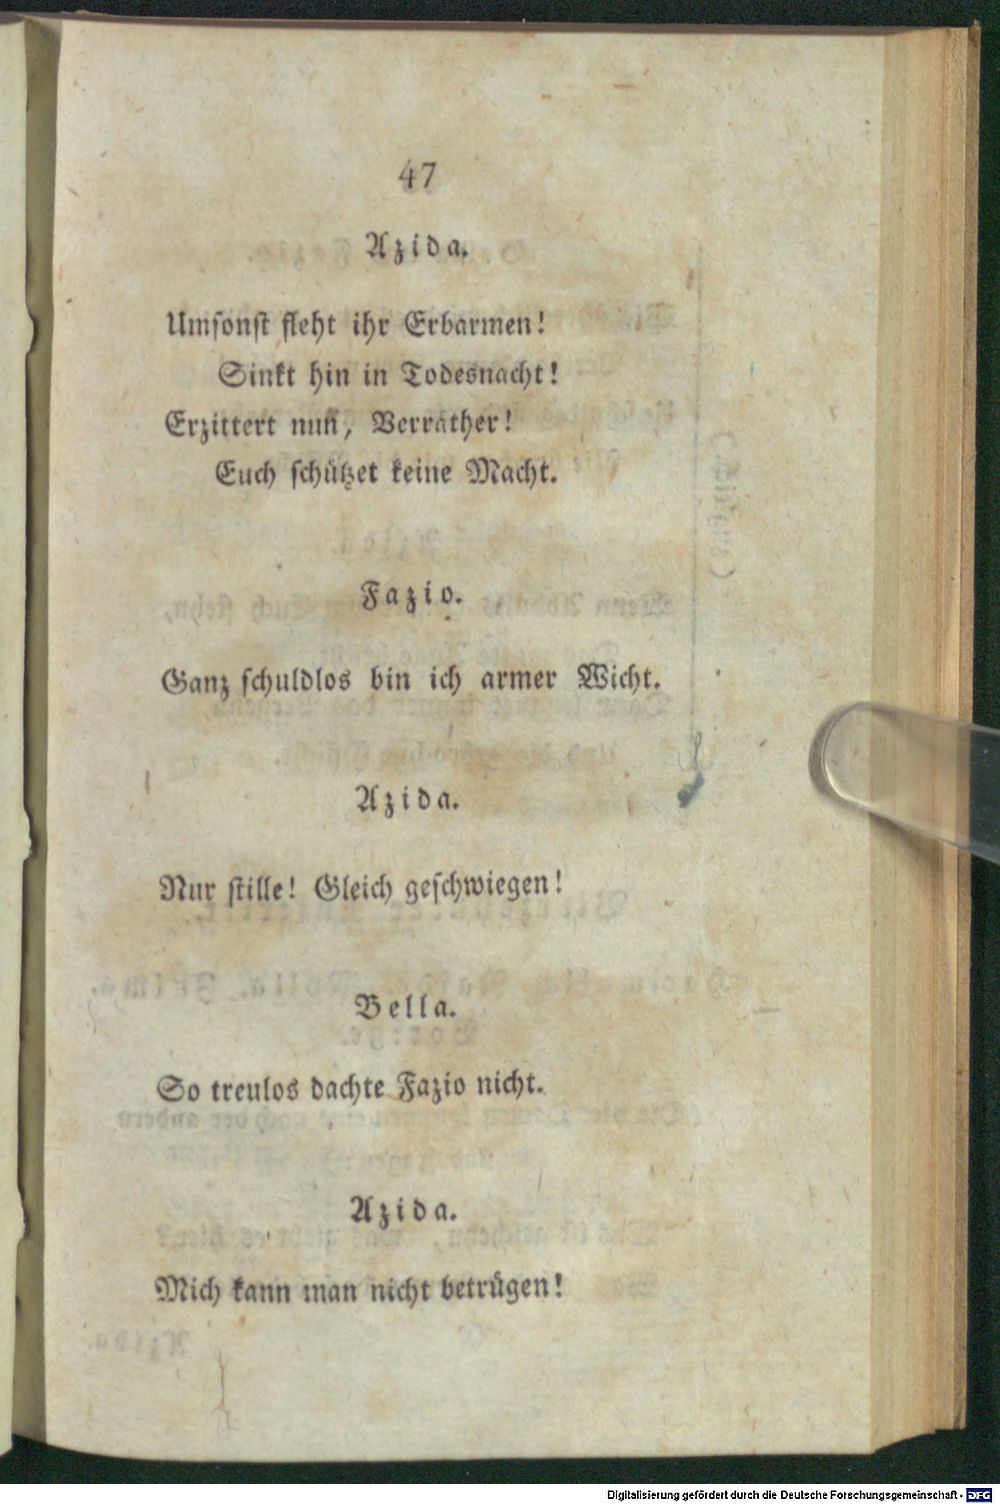 47
Azida.
Umsonst fleht ihr Erbarmen!
Sinkt hin in Todesnacht!
Erzittert nun, Verräther!
Euch schützet keine Macht.
Fazio.
Ganz schuldlos bin ich armer Wicht.
Azida.
Nur stille! Gleich geschwiegen!
Bella.
So treulos dachte Fazio nicht.
Azida.
Mich kann man nicht betrügen!
Digitalisierung gefördert durch die Deutsche Forschungsgemeinschaft - DFG